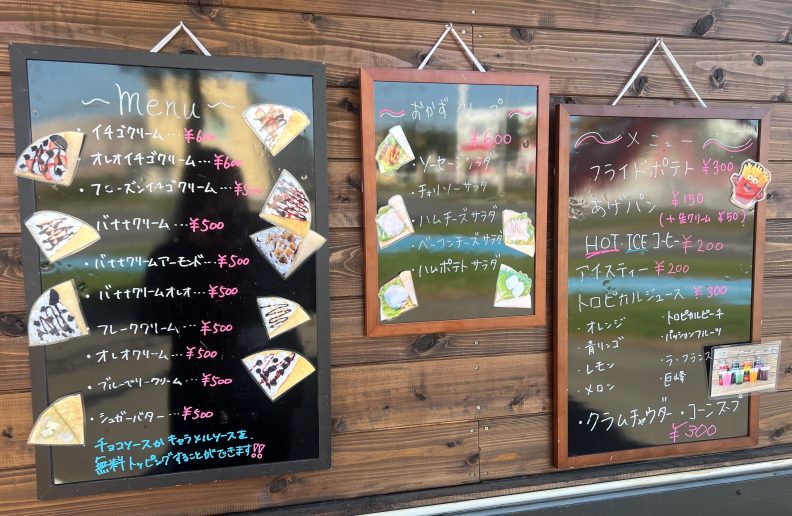 ～Menu～
・イチゴクリーム…¥600
・オレオイチゴクリーム…¥600
・フローズンイチゴクリーム…¥500
・バナナクリーム…¥500
・バナナクリームアーモンド…¥500
・バナナクリームオレオ…¥500
・フレーククリーム…¥500
・オレオクリーム…¥500
・ブルーベリークリーム…¥500
・シュガーバター…¥500
チョコソースかキャラメルソースを、
無料トッピングすることができます!!
～おかずクレープ～
¥600
・ソーセージサラダ
・チョリソーサラダ
・ハムチーズサラダ
・ベーコンチーズサラダ
・ハムポテトサラダ
～メニュー～
フライドポテト ¥300
あげパン ¥150
(+生クリーム ¥50)
HOT・ICEコーヒー ¥200
アイスティー ¥200
トロピカルジュース ¥300
・オレンジ ・トロピカルピーチ
・青リンゴ ・パッションフルーツ
・レモン ・ラ・フランス
・メロン ・巨峰
・クラムチャウダー・コーンスープ
¥300